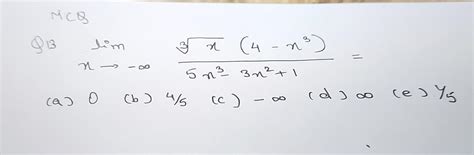 MCQ
Q13 lim x → -∞ ∛x (4 - x³) / 5x³ - 3x² + 1 =
(a) 0 (b) 4/5 (c) - ∞ (d) ∞ (e) 1/5